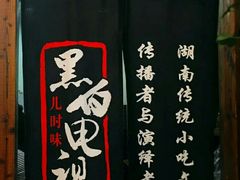 湖南传统小吃
传播者与演绎者
黑白电视
儿时味